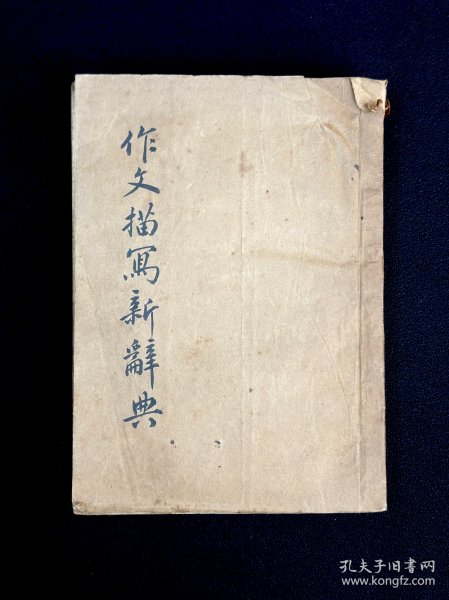 作文描寫新辭典
孔夫子旧书网
www.kongfz.com